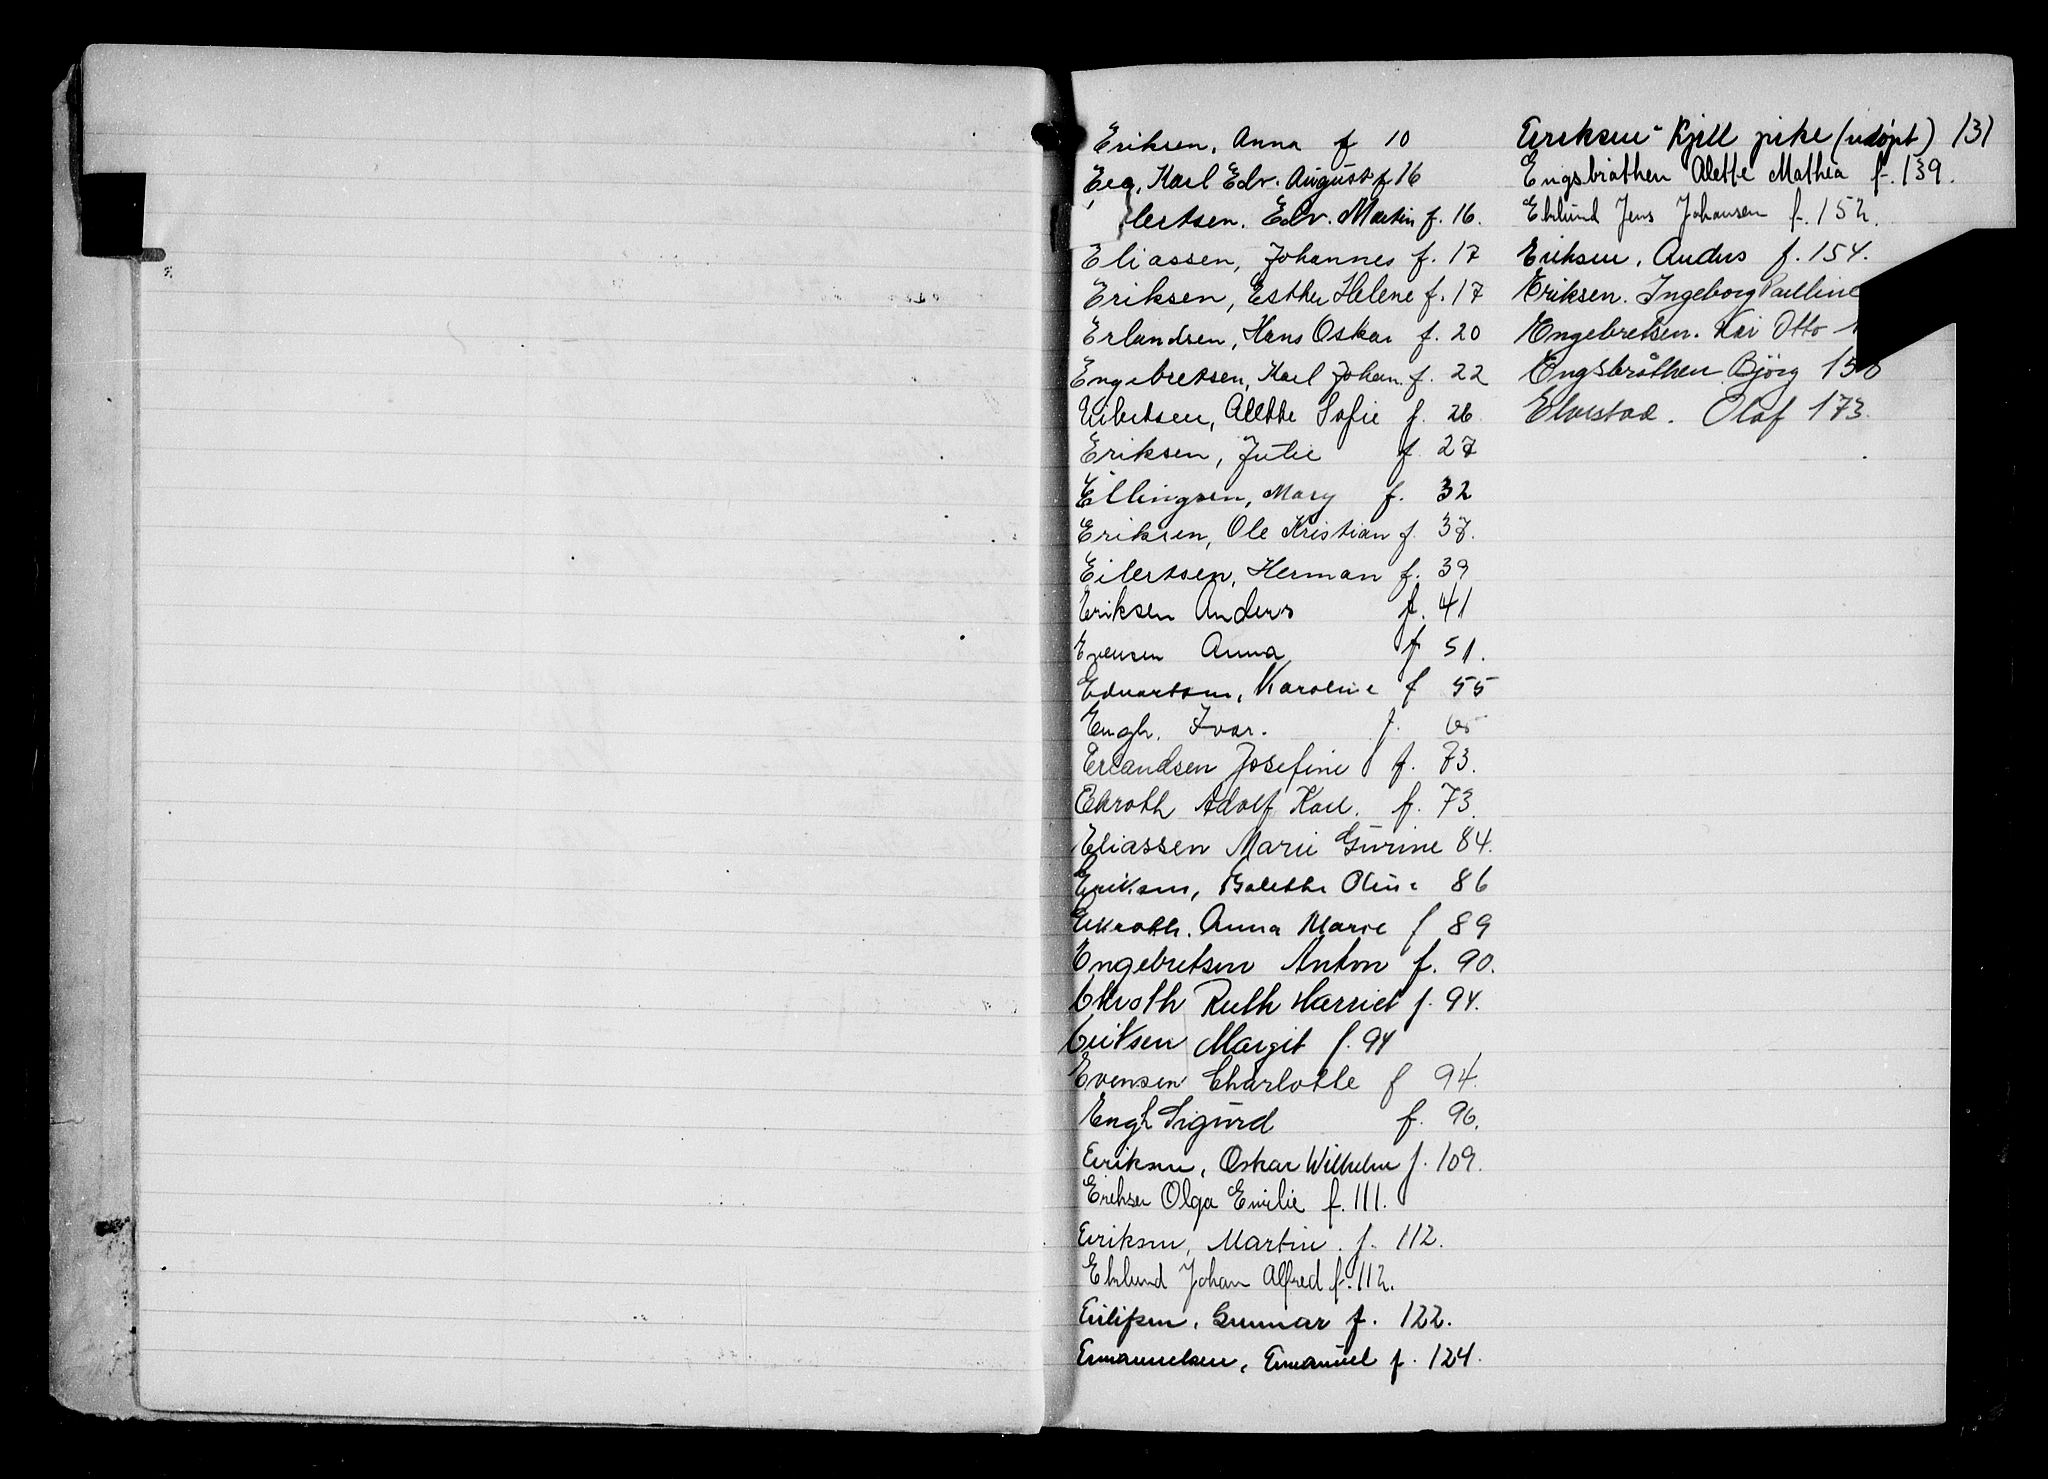 Eriksen, Anna f 10
Eeg, Karl Edv. August f 16
lertsen. Edv. Martin f. 16.
Eliassen, Johannes f. 17
Eriksen, Esther Helene f. 17
Erlandsen, Hans Oskar f. 20
Engebretsen, Karl Johan. f. 22
Alette Sofie f. 26
Eriksen, Julie f. 27
Ellingsen, Mary f. 32
Eriksen, Ole Kristian f. 37.
Eilertsen, Herman f. 39
Eriksen Anders f. 41
Evensen Anna f 51.
Edvartsen, Karoline f 55
Engh, Ivar. f.
Erlandsen Josefine f. 73.
Ekroth Adolf Karl. f. 73.
Eliassen Marie Gurine 84.
Eriksen, Oline 86
Ekroth. Anna Marie f 89
Engebretsen Anton f. 90.
Ekroth Ruth Harriet f. 94.
Eriksen Margit f. 94
Evensen Charlotte f 94.
Engh Sigurd f. 96.
Eriksen, Oskar Wilhelm f. 109.
Eriksen Olga Emilie f. 111.
Eriksen, Martin. f. 112.
Eklund Johan Alfred f. 112.
Eilifsen, Gunnar f. 122.
Emanuelsen, Emanuel f. 124.
Eriksen - Kjell pike (udøpt) 131
Engsbråthen Alette Mathea f. 139.
Eklund Jens Johansen f. 152.
Eriksen, Anders f. 154.
Eriksen. Ingeborg Pauline
Engebretsen. Kai Otto 1
Engsbråthen Bjørg 15
Elvestad. Olaf 173.